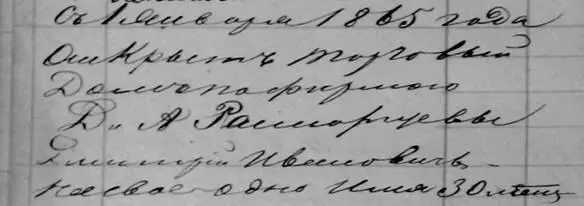 съ 1 Января 1865 года
открытъ торговый
Домъ по фирмою
Д. и А Расторгуевы
Дмитрий Ивановичь
на свое одно Имя 30 летъ